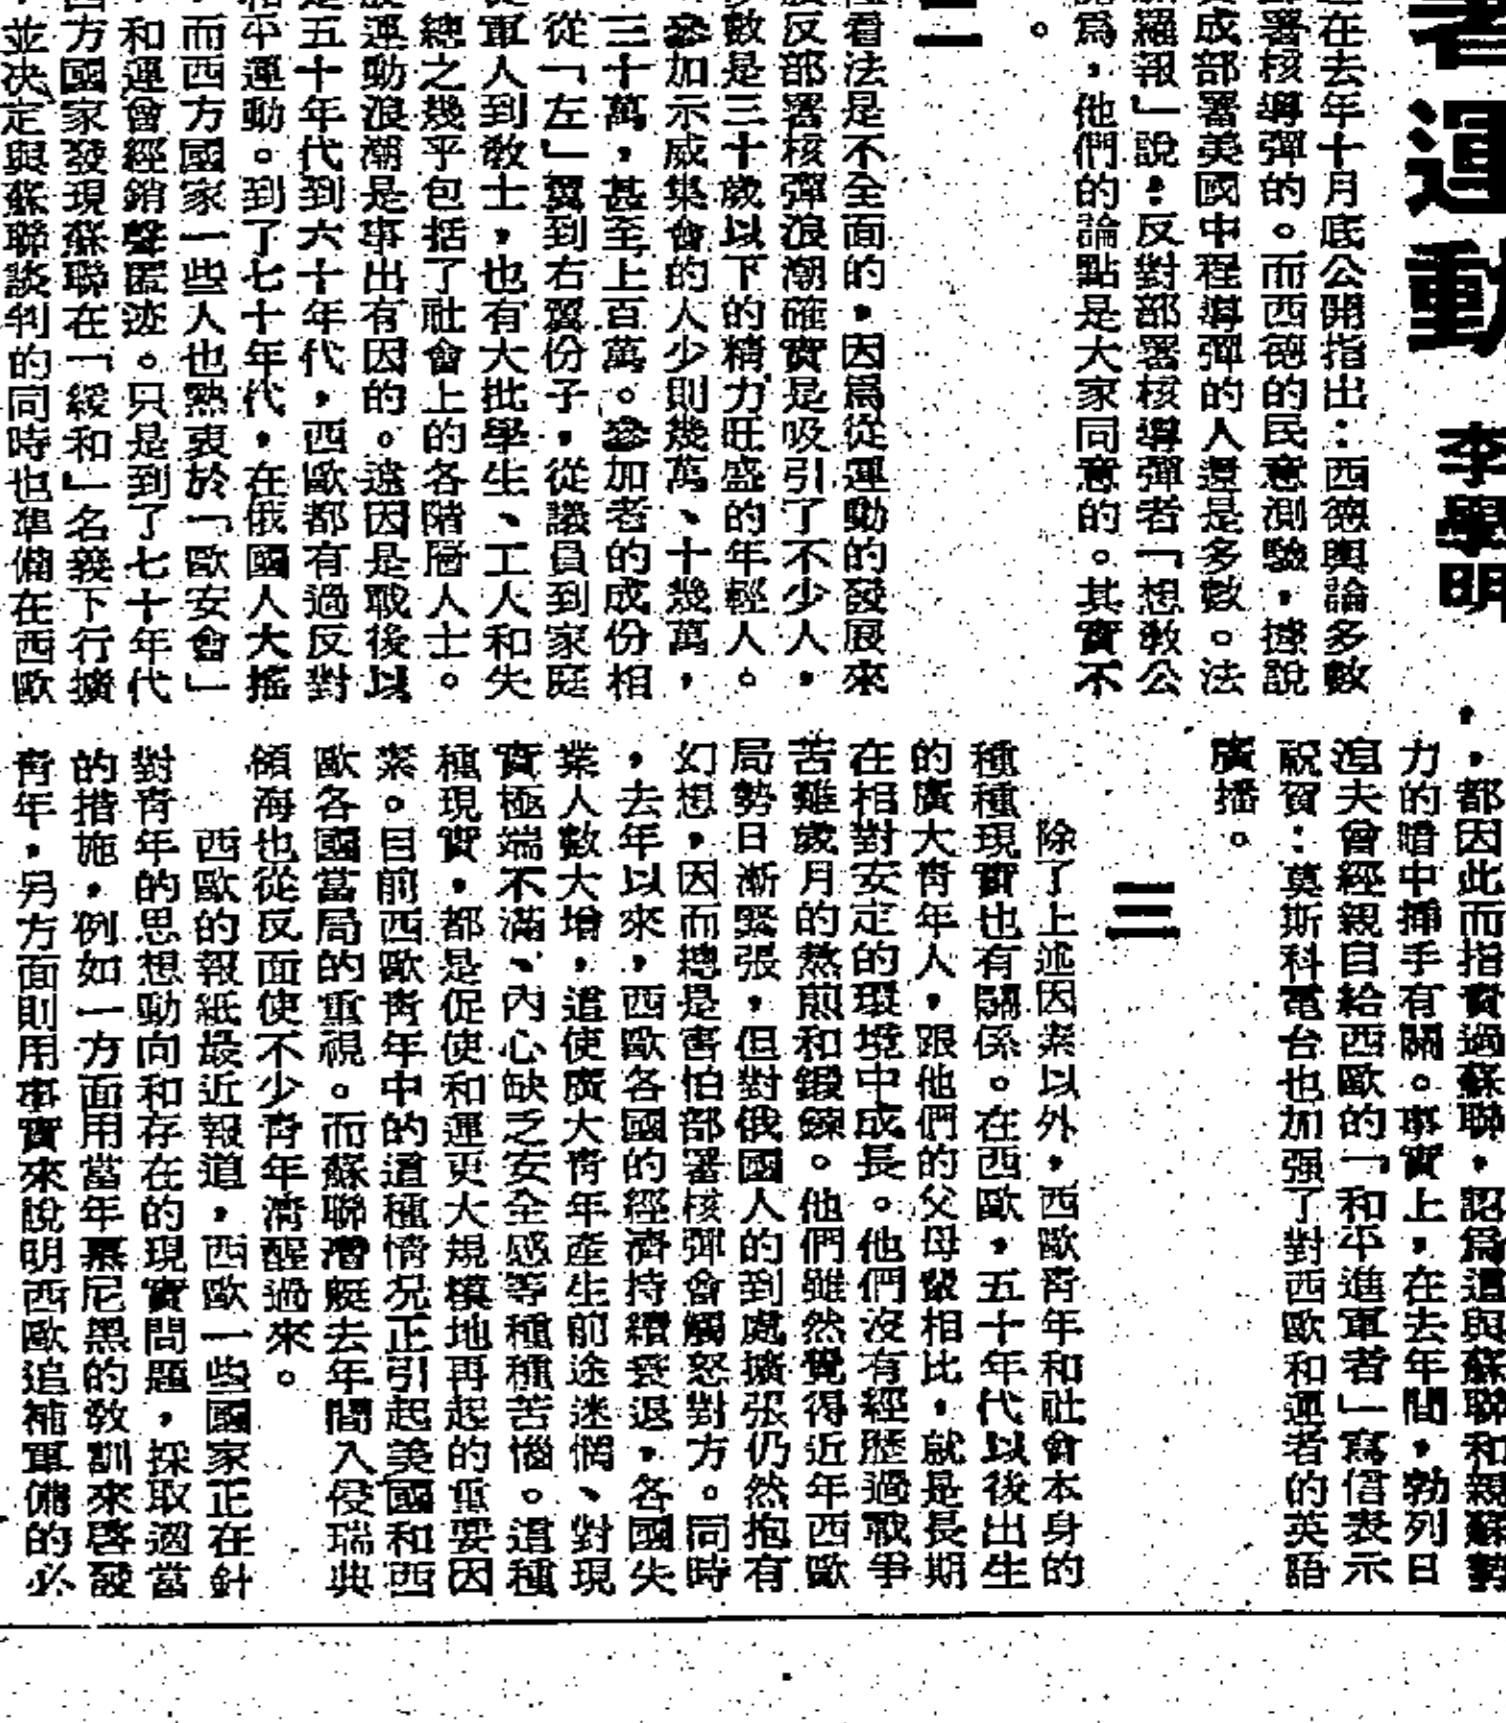 者運動
李學明
在去年十月底公開指出：西德輿論多數
署核導彈的。而西德的民意測驗，據說
成部署美國中程導彈的人還是多數。法
羅報」說：反對部署核導彈者「想敎公
爲，他們的論點是大家同意的。其實不
。
二
看法是不全面的，因爲從運動的發展來
反部署核彈浪潮確實是吸引了不少人，
數是三十歲以下的精力旺盛的年輕人。
參加示威集會的人少則幾萬、十幾萬，
三十萬，甚至上百萬。參加者的成份相
從「左」翼到右翼份子，從議員到家庭
軍人到敎士，也有大批學生、工人和失
總之幾乎包括了社會上的各階層人士。
運動浪潮是事出有因的。遠因是戰後以
五十年代到六十年代，西歐都有過反對
和平運動。到了七十年代，在俄國人大搖
，而西方國家一些人也熱衷於「歐安會」
，和運曾經銷聲匿迹。只是到了七十年代
西方國家發現蘇聯在「緩和」名義下行擴
，並決定與蘇聯談判的同時也準備在西歐
，都因此而指責過蘇聯，認爲這與蘇聯和親蘇勢
力的暗中插手有關。事實上，在去年間，勃列日
湼夫曾經親自給西歐的「和平進軍者」寫信表示
祝賀：莫斯科電台也加强了對西歐和運者的英語
廣播。
三
除了上述因素以外，西歐靑年和社會本身的
種種現實也有關係。在西歐，五十年代以後出生
的廣大靑年人，跟他們的父母輩相比，就是長期
在相對安定的環境中成長。他們沒有經歷過戰爭
苦難歲月的熬煎和鍛鍊。他們雖然覺得近年西歐
局勢日漸緊張，但對俄國人的到處擴張仍然抱有
幻想，因而總是害怕部署核彈會觸怒對方。同時
，去年以來，西歐各國的經濟持續衰退，各國失
業人數大增，這使廣大靑年產生前途迷惘、對現
實極端不滿、內心缺乏安全感等種種苦惱。這種
種現實，都是促使和運更大規模地再起的重要因
素。目前西歐靑年中的這種情况正引起美國和西
歐各國當局的重視。而蘇聯潛艇去年間入侵瑞典
領海也從反面使不少靑年淸醒過來。
西歐的報紙最近報道，西歐一些國家正在針
對靑年的思想動向和存在的現實問題，採取適當
的措施，例如一方面用當年慕尼黑的敎訓來啓發
靑年，另方面則用事實來說明西歐追補軍備的必